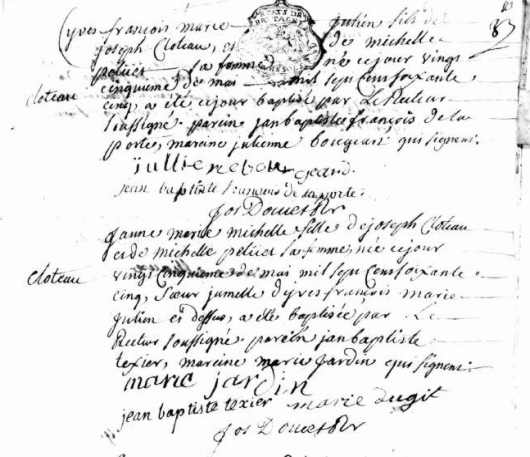 83
yves françois marie julien fils de
joseph Cloteau, et de michelle
peltier sa femme né ce jour vingt
cinquieme de mai mil sept cens soixante
Cloteau
cinq, a eté ce jour baptisé par Le Recteur
soussigné parein jan baptiste françois de la
porte, maraine julienne bougeart qui signent.
jullienne bougeard
jean baptiste françois de laporte
Jos
Janne marie michelle fille de joseph Cloteau
et de michelle peltier sa femme, née ce jour
Cloteau
vingt cinquieme de mai mil sept cens soixante
cinq, sœur jumelle d'yves françois marie
julien ci dessus, a eté baptisée par Le
Recteur soussigné parein jan baptiste
texier, maraine marie jardin qui signent.
marie jardin
jean baptiste texier marie
Jos